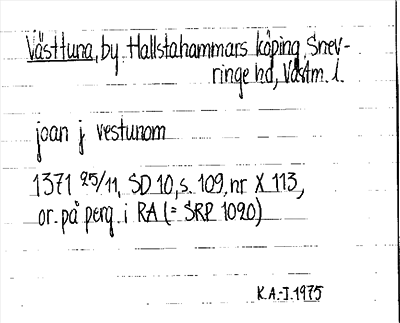 Västtuna, by, Hallstahammars köping, Snev-
ringe hd, Västm. l.
joan j vestunom
1371 25/11, SD 10, s. 109, nr X 113,
or. på perg. i RA (= SRP 1020)
K.A.-J. 1975